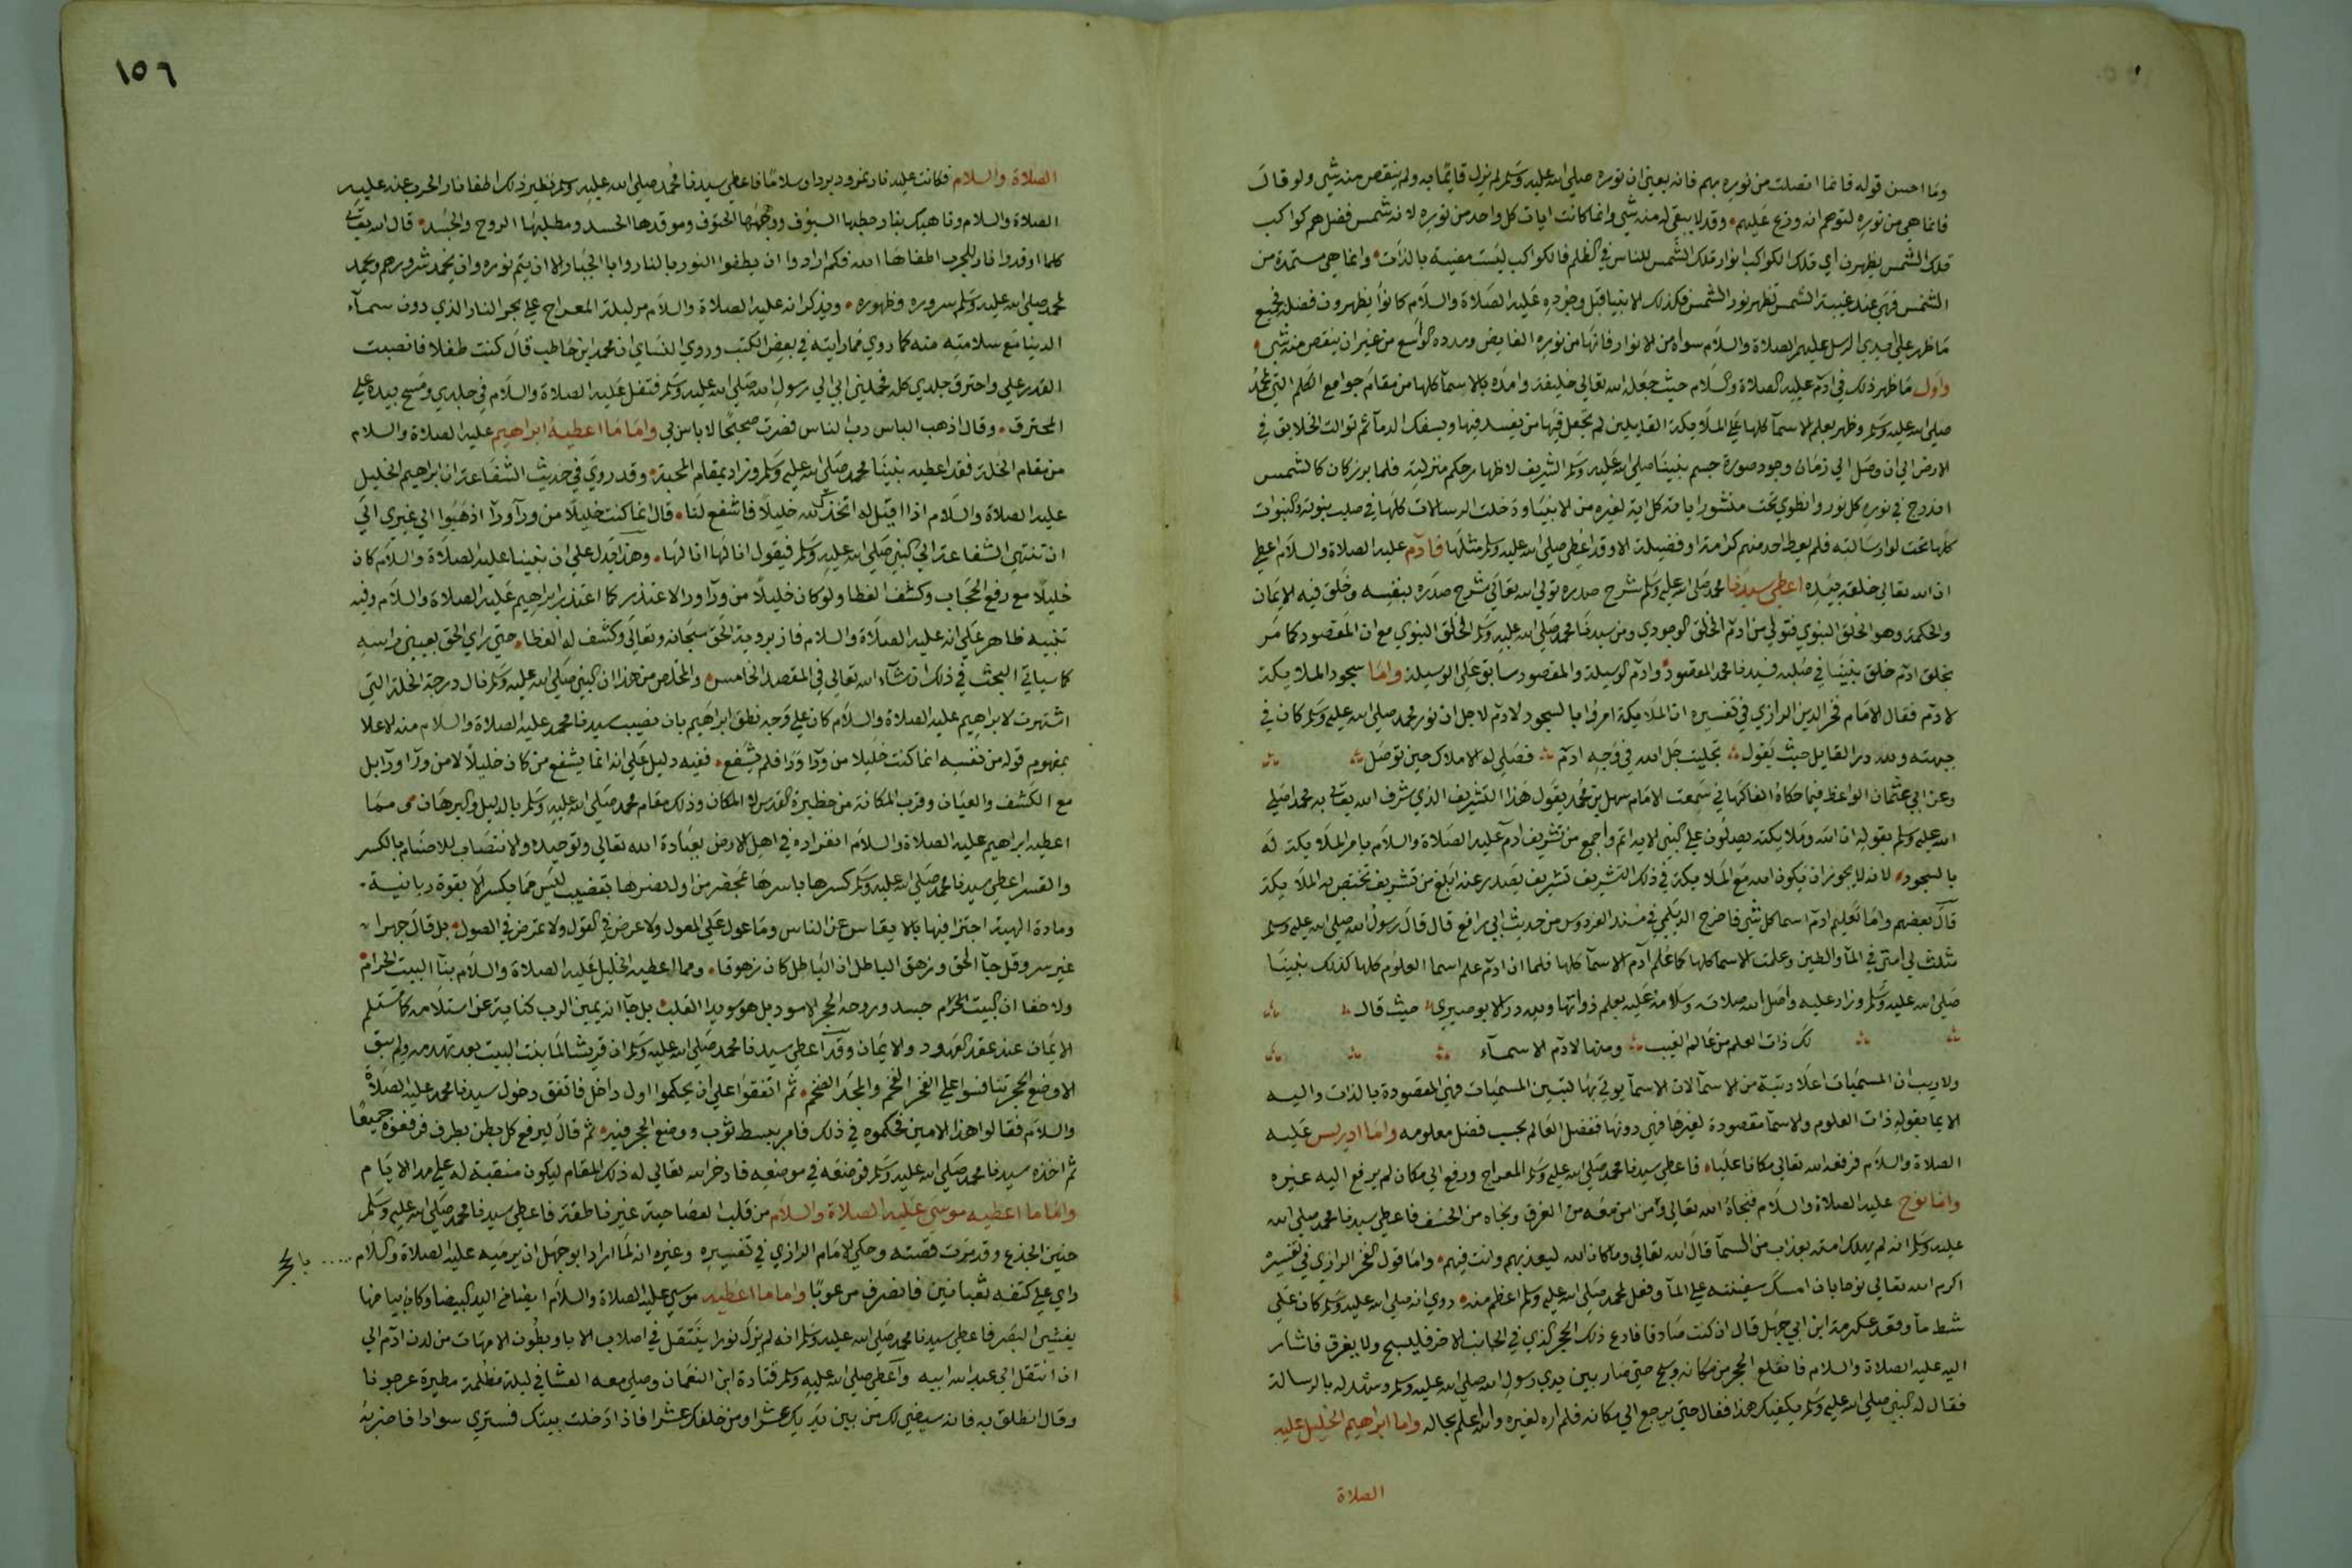 وما احسن قوله فانما اتصلت من نوره بهم فانه يعني ان نوره صلى الله عليه وسلم لم يزل قايمًا به ولم ينقص منه شي ولو قال
فانما هي من نوره لتوهم انه وزع عليهم وقد لا يبقى له منه شي وانما كانت ايات كل واحد من نوره لانه شمس فضل هم كواكب
تلك الشمس يظهرن اي تلك الكواكب انوار تلك الشمس للناس في الظلم فالكواكب ليست مضيية بالذات وانما هي مستمدة من
الشمس فهي عند غيبة الشمس تظهر نور الشمس فكذلك الانبيا قبل وجوده عليه الصلاة والسلام كانوا يظهرون فضله فجميع
ما ظهر على ايدي الرسل عليهم الصلاة والسلام سواه من الانوار فانها من نوره الفايض ومدده الواسع من غير ان ينقص منه شي
واول ما ظهر ذلك في ادم عليه الصلاة والسلام حيث جعله الله تعالى خليفة وامده بالاسما كلها من مقام جوامع الكلم التي لمحمد
صلى الله عليه وسلم وظهر بعلم الاسما كلها على الملايكة القايلين لم تجعل فيها من يفسد فيها ويسفك الدما ثم توالت الخلايق في
الارض الى ان وصل الى زمان وجود صورة جسم نبينا صلى الله عليه وسلم الشريف لاظهار حكم منزلته فلما برز كان كالشمس
اندرج في نوره كل نور وانطوى تحت منشور اياته كل اية لغيره من الانبيا ودخلت الرسالات كلها في صلب نبوته والنبوات
كلها تحت لوا رسالته فلم يعط احد منهم كرامة او فضيلة الا وقد اعطي صلى الله عليه وسلم مثلها فادم عليه الصلاة والسلام اعطي
ان الله تعالى خلقه بيده اعطي سيدنا محمد صلى الله عليه وسلم شرح صدره تولى الله تعالى شرح صدره بنفسه وخلق فيه الايمان
والحكمة وهو الخلق النبوي فتولى من ادم الخلق الوجودي ومن سيدنا محمد صلى الله عليه وسلم الخلق النبوي مع ان المقصود كما مر
بخلق ادم خلق نبينا في صلبه فسيدنا محمد المقصود وادم الوسيلة والمقصود سابق على الوسيلة واما سجود الملايكة
لادم فقال الامام فخر الدين الرازي في تفسيره ان الملايكة امروا بالسجود لادم لاجل ان نور محمد صلى الله عليه وسلم كان في
جبهته ولله در القايل حيث يقول تجليت جل الله في وجه ادم فصلى له الاملاك حين توصل
وعن ابي عثمان الواعظ فيما حكاه الفاكهاني سمعت الامام سهل بن محمد يقول هذا التشريف الذي شرف الله تعالى به محمدا صلى
الله عليه وسلم بقوله ان الله وملايكته يصلون على النبي الاية اتم واجمع من تشريف ادم عليه الصلاة والسلام بامر الملايكة له
بالسجود لانه لا يجوز ان يكون الله مع الملايكة في ذلك التشريف تشريف يصدر عنه ابلغ من تشريف تختص به الملايكة
قال بعضهم واما تعليم ادم اسما كل شي فاخرج الديلمي في مسند الفردوس من حديث ابي رافع قال قال رسول الله صلى الله عليه وسلم
مثلت لي امتي في الما والطين وعلمت الاسما كلها كما علم ادم الاسما كلها فلما ان ادم علم اسما العلوم كلها كذلك نبينا
صلى الله عليه وسلم وزاد عليه واصل الله صلاته وسلامه عليه بعلم ذواتها ولله در الابوصيري حيث قال
لك ذات العلم من عالم الغيب ومنها لادم الاسماء
ولا ريب ان المسميات اعلا رتبة من الاسما لان الاسما يوتى بها لتبين المسميات فهي المقصودة بالذات واليه
الايما بقوله ذات العلوم والاسما مقصودة لغيرها فهي دونها ففضل العالم بحسب فضل معلومه واما ادريس عليه
الصلاة والسلام فرفعه الله تعالى مكانا عليا فاعطي سيدنا محمد صلى الله عليه وسلم المعراج ورفع الى مكان لم يرفع اليه غيره
واما نوح عليه الصلاة والسلام فنجاه الله تعالى ومن امن معه من الغرق ونجاه من الخسف فاعطي سيدنا محمد صلى الله
عليه وسلم انه لم يهلك امته بعذاب من السما قال الله تعالى وما كان الله ليعذبهم وانت فيهم واما قول الفخر الرازي في تفسيره
اكرم الله تعالى نوحا بان امسك سفينته على الما وفعل لمحمد صلى الله عليه وسلم اعظم منه روي انه صلى الله عليه وسلم كان على
شط ما وقعد عكرمة ابن ابي جهل قال ان كنت صادقا فادع ذلك الحجر الذي في الجانب الاخر فليسبح ولا يغرق فاشار
اليه عليه الصلاة والسلام فانقلع الحجر من مكانه وسبح حتى صار بين يدي رسول الله صلى الله عليه وسلم وشهد له بالرسالة
فقال له النبي صلى الله عليه وسلم يكفيك هذا فقال حتى يرجع الى مكانه فلم اره لغيره والله اعلم بحاله واما ابراهيم الخليل عليه
الصلاة
١٥٦
الصلاة والسلام فكانت عليه نار نمرود بردا وسلامًا فاعطي سيدنا محمد صلى الله عليه وسلم نظير ذلك اطفا نار الحرب عنه عليه
الصلاة والسلام وناهيك بنار حطبها السيوف ووهجها الحتوف وموقدها الحسد ومطلبها الروح والجسد قال الله تعالى
كلما اوقدوا نارا للحرب اطفاها الله فكم ارادوا ان يطفوا النور بالنار وابا الجبار الا ان يتم نوره وان يخمد شرورهم ويحمد
لمحمد صلى الله عليه وسلم سروره وظهوره ويذكر انه عليه الصلاة والسلام مر ليلة المعراج على بحر النار الذي دون سماء
الدنيا مع سلامته منه كما روي مما رايته في بعض الكتب وروى النساي ان محمد ابن حاطب قال كنت طفلا فانصبت
القدر علي واحترق جلدي كله فحملني ابي الى رسول الله صلى الله عليه وسلم فتفل عليه الصلاة والسلام في جلدي ومسح بيده على
المحترق وقال اذهب الباس رب الناس فصرت صحيحًا لا باس بي واما ما اعطيه ابراهيم عليه الصلاة والسلام
من مقام الخلة فقد اعطيه نبينا محمد صلى الله عليه وسلم وزاد بمقام المحبة وقد روي في حديث الشفاعة ان ابراهيم الخليل
عليه الصلاة والسلام اذا قيل له اتخذك الله خليلاً فاشفع لنا قال انما كنت خليلاً من ورآ ورآ اذهبوا الى غيري الى
ان تنتهي الشفاعة الى النبي صلى الله عليه وسلم فيقول انا لها انا لها وهذا يدل على ان نبينا عليه الصلاة والسلام كان
خليلاً مع رفع الحجاب وكشف الغطا ولو كان خليلاً من ورآ ورا لاعتذر كما اعتذر ابراهيم عليه الصلاة والسلام وفيه
تنبيه ظاهر على انه عليه الصلاة والسلام فاز بروية الحق سبحانه وتعالى وكشف له الغطا حتى راى الحق بعيني راسه
كما سياتي البحث في ذلك ان شاء الله تعالى في المقصد الخامس والملخص من هذا ان النبي صلى الله عليه وسلم نال درجة الخلة التي
اشتهرت لابراهيم عليه الصلاة والسلام كان على وجه نطق ابراهيم بان نصيب سيدنا محمد عليه الصلاة والسلام منه الاعلا
بمفهوم قوله من نفسه انما كنت خليلا من ورآ ورا فلم يشفع ففيه دليل على انه انما يشفع من كان خليلاً لا من ورآ ورآ بل
مع الكشف والعيان وقرب المكانة من حظيرة القدس لا المكان وذلك مقام محمد صلى الله عليه وسلم بالدليل والبرهان مما
اعطيه ابراهيم عليه الصلاة والسلام انفراده في اهل الارض بعبادة الله تعالى وتوحيده والانتصاب للاصنام بالكسر
والقسر اعطي سيدنا محمد صلى الله عليه وسلم كسرها باسرها بمحضر من اولي نصرها بقضيب ليس مما يكسر الا بقوة ربانية
ومادة الهية اجتزا فيها بالانفاس عن الناس وما عول على المعول ولا عرض في القول ولا تمرض في الصول بل قال جهرا
غير سر وقل جا الحق وزهق الباطل ان الباطل كان زهوقا ومما اعطيه الخليل عليه الصلاة والسلام بنآ البيت الحرام
ولا خفا ان البيت الحرام جسد وروحه الحجر الاسود بل هو سويدا القلب بل جا انه يمين الرب كناية عن استلامه كما تستلم
الايمان عند عقد العهود والايمان وقد اعطي سيدنا محمد صلى الله عليه وسلم ان قريشا لما بنت البيت بعد تهدمه ولم يبق
الا وضع الحجر تنافسوا على الفخر الفخم والمجد الضخم ثم اتفقوا على ان يحكموا اول داخل فاتفق دخول سيدنا محمد عليه الصلاة
والسلام فقالوا هذا الامين فحكموه في ذلك فامر ببسط ثوب ووضع الحجر فيه ثم قال ليرفع كل بطن بطرف فرفعوه جميعًا
ثم اخذه سيدنا محمد صلى الله عليه وسلم فوضعه في موضعه فادخر الله تعالى له ذلك المقام ليكون منقبة له على مدا الايام
واما ما اعطيه موسى عليه الصلاة والسلام من قلب العصا حية غير ناطقة فاعطي سيدنا محمد صلى الله عليه وسلم
حنين الجذع وقد مرت قصته وحكى الامام الرازي في تفسيره وغيره انه لما اراد ابو جهل ان يرميه عليه الصلاة والسلام بالحجر
راى على كتفه ثعبانين فانصرف مرعوبًا واما ما اعطيه موسى عليه الصلاة والسلام ايضا من اليد البيضا وكان بياضها
يغشي البصر فاعطي سيدنا محمد صلى الله عليه وسلم انه لم يزل نورا ينتقل في اصلاب الابا وبطون الامهات من لدن ادم الى
ان انتقل الى عبد الله ابيه واعطى صلى الله عليه وسلم قتادة ابن النعمان وصلى معه العشا في ليلة مظلمة مطيرة عرجونا
وقال انطلق به فانه سيضي لك من بين يديك عشرا ومن خلفك عشرا فاذا دخلت بيتك فسترى سوادا فاضربه